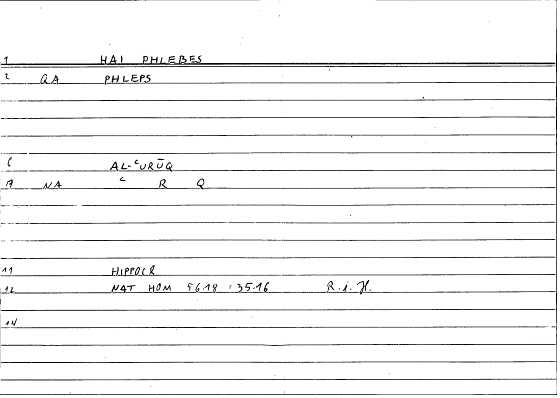 1 HAI PHLEBES
2 QA PHLEPS
6 AL-ʿURŪQ
7 NA ʿ R Q
11 HIPPOCR
12 NAT HOM 56.18 : 35.16 R.i.H.
14